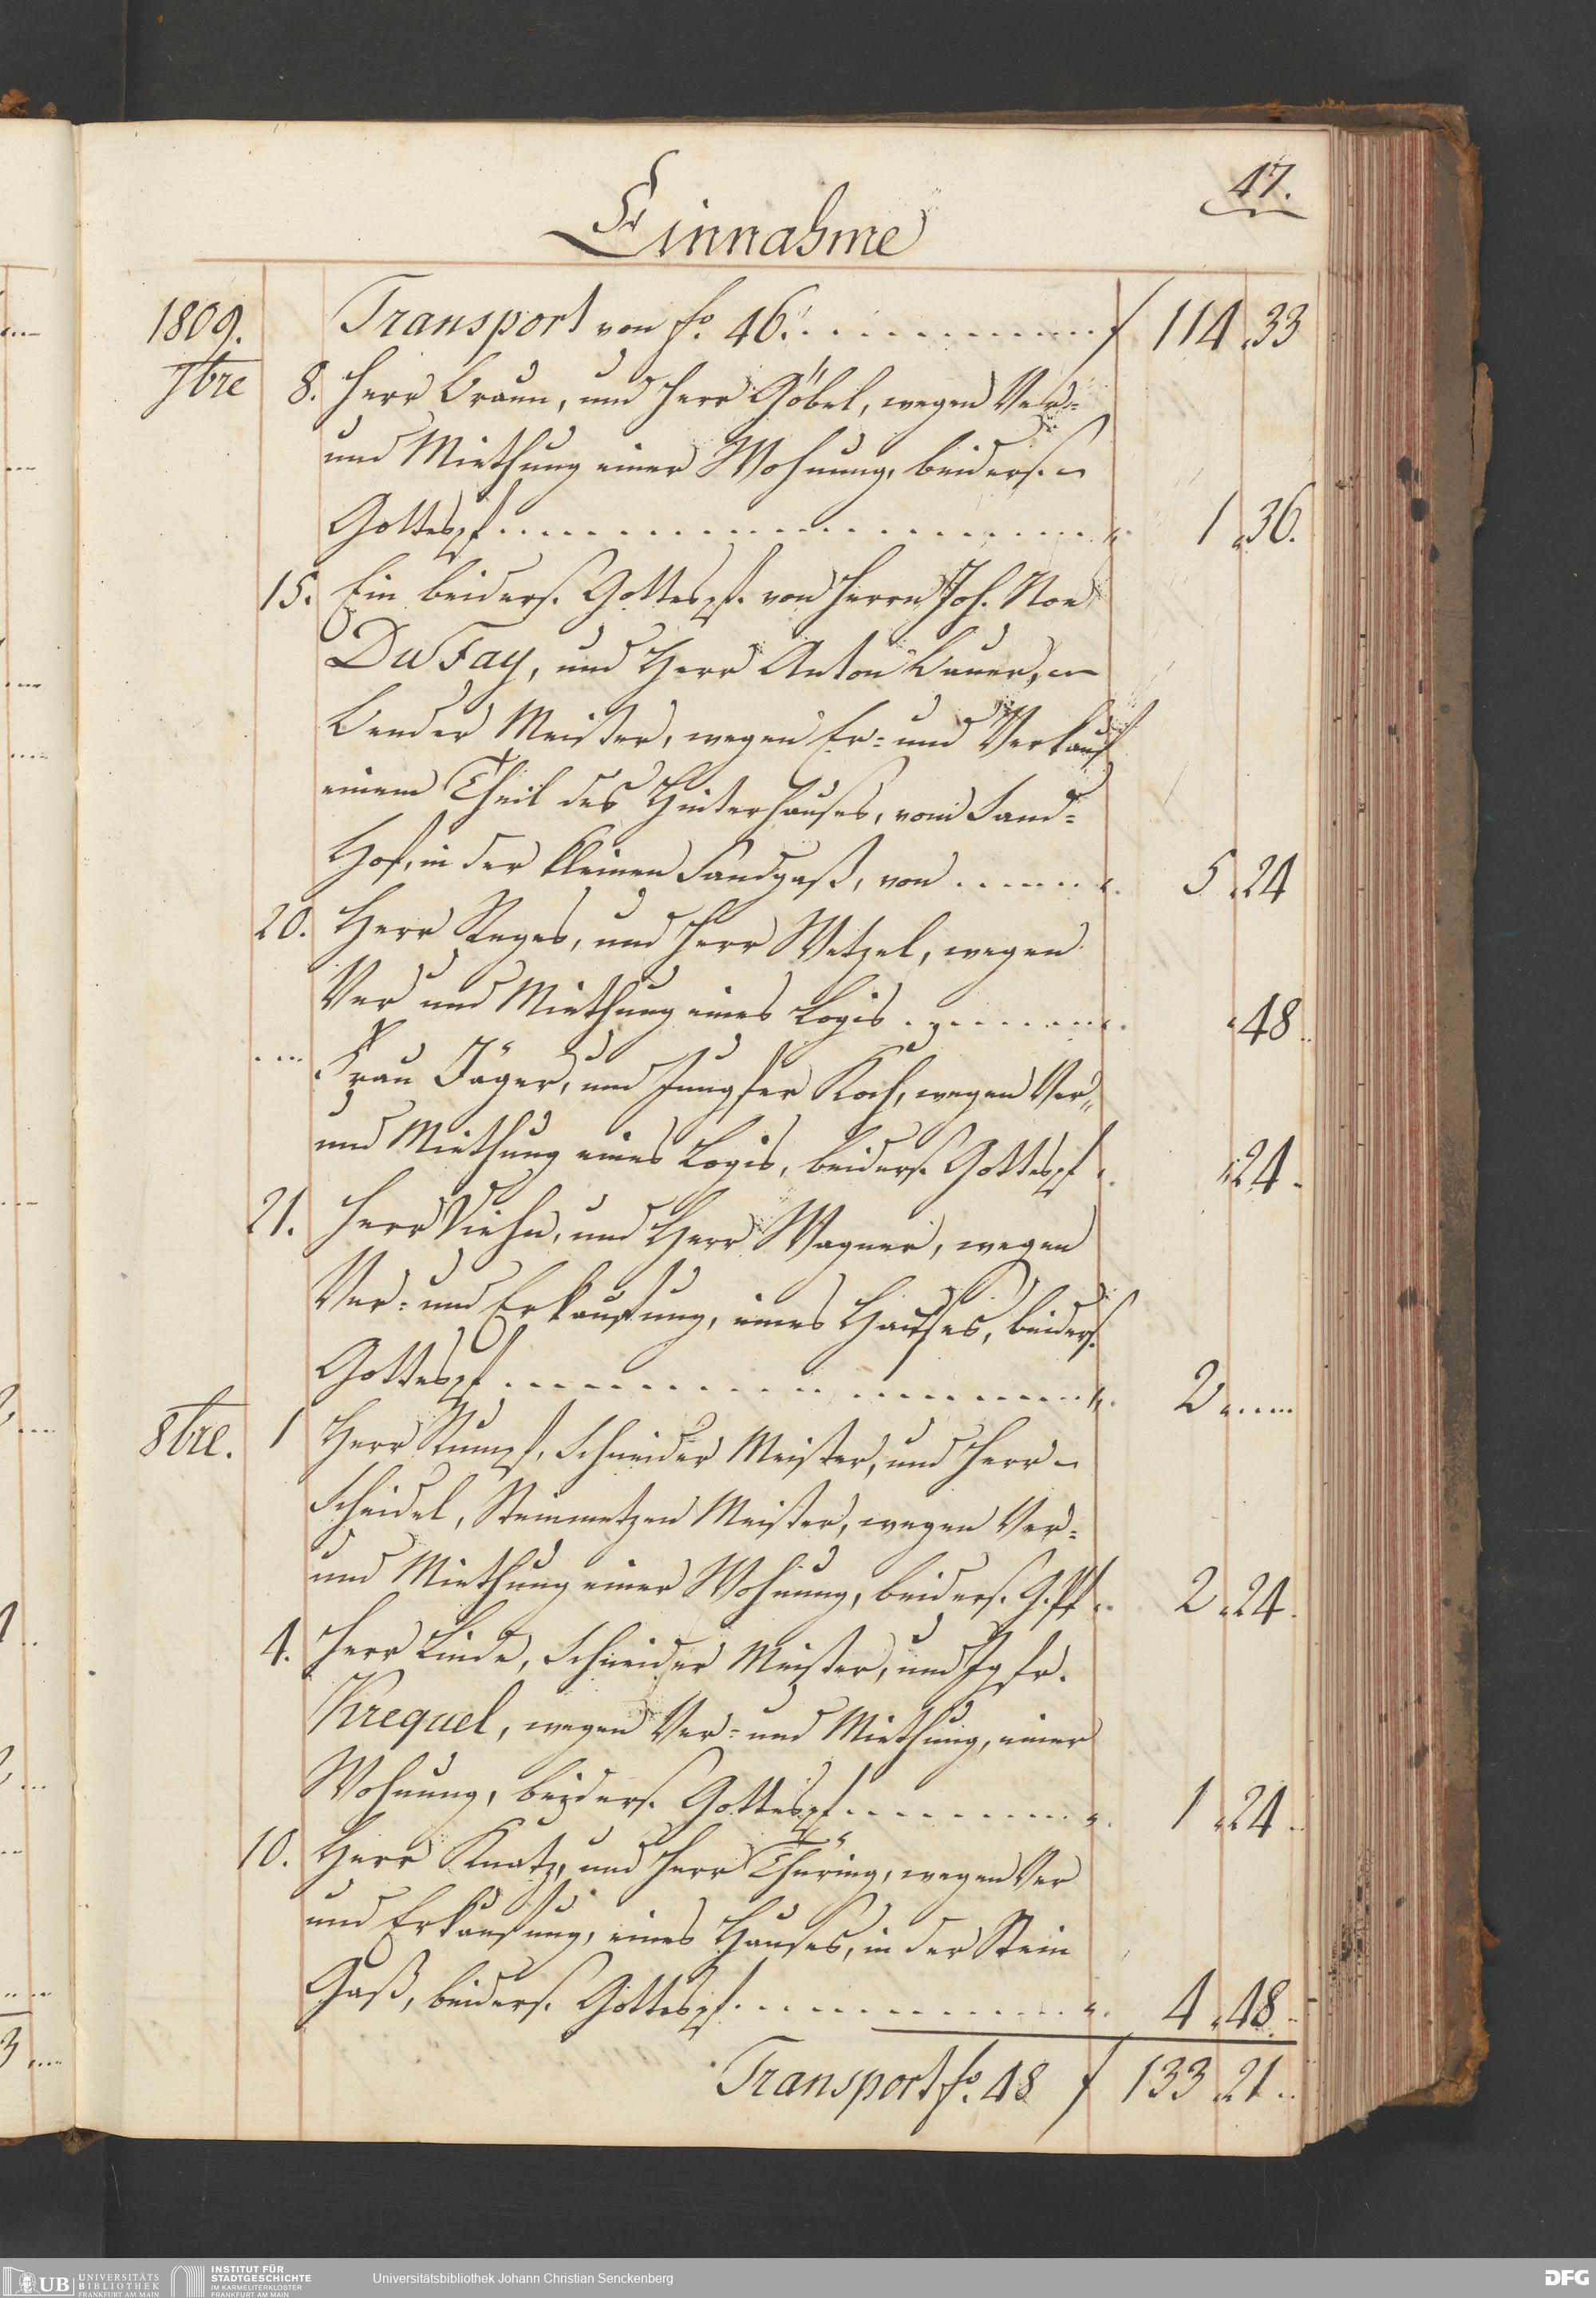 47.
Einnahme
1809. Transport von fo. 46. . . . . . . . . . . . . f 114 „ 33
7bre 8. Herr Braun, und Herr Göbel, wegen Ver=
und Miethung einer Wohnung, beiders.
Gottespf . . . . . . . . . . . . . . „ 1 „ 36.
15. Ein beiders. Gottespf. von Herrn Joh. Noe
DuFay, und Herr Anton Bauer,
Bender Meister, wegen Er= und Verkauf
einem Theil des Hinterhauses, vom Sand=
Hof, in der kleinen Sandgaß, von . . . . . . „ 5 „ 24
20. Herr Reges, und Herr Wetzel, wegen
Ver und Miethung eines Logis . . . . . . . . „ „ 48
.... Frau Jäger, und Jungfer Koch, wegen Ver„
und Miethung eines Logis, beiders. Gottespf „ „ 24
21. Herr Viehn, und Herr Wagner, wegen
Ver= und Erkaufung, eines Hauses, beiders.
Gottespf . . . . . . . . . . . . . . „ 2 „ ....
8bre. 1 Herr Rumpf, Schneider Meister, und Herr
Scheidel, Steinmetzen Meister, wegen Ver=
und Miethung einer Wohnung, beiders. G.pf „ 2 „ 24
4. Herr Linde, Schneider Meister, und Jgfr.
Krequel, wegen Ver= und Miethung, einer
Wohnung, beyders. Gottespf . . . . . . . . . . „ 1 „ 24
10. Herr Knatz, und Herr Thüring, wegen Ver
und Erkaufung, eines Hauses, in der Stein
Gaß, beiders. Gottespf. . . . . . . . . . . . . „ 4 „ 48
Transport fo. 48 f 133 „ 21
UB UNIVERSITÄTS
BIBLIOTHEK
FRANKFURT AM MAIN
INSTITUT FÜR
STADTGESCHICHTE
IM KARMELITERKLOSTER
FRANKFURT AM MAIN
Universitätsbibliothek Johann Christian Senckenberg
DFG